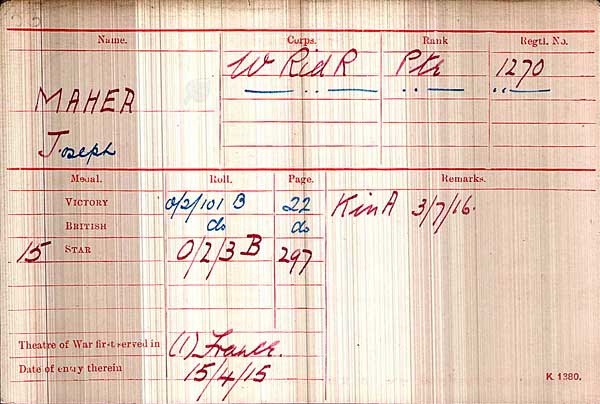 Name. Corps. Rank Regtl. No.
MAHER W Rid R Pte 1270
Joseph
Medal. Roll. Page. Remarks.
VICTORY O/2/101 B 22 Kin A 3/7/16.
BRITISH do do
15 STAR O/2/3 B 297
Theatre of War first served in (1) France.
Date of entry therein 15/4/15
K 1380.